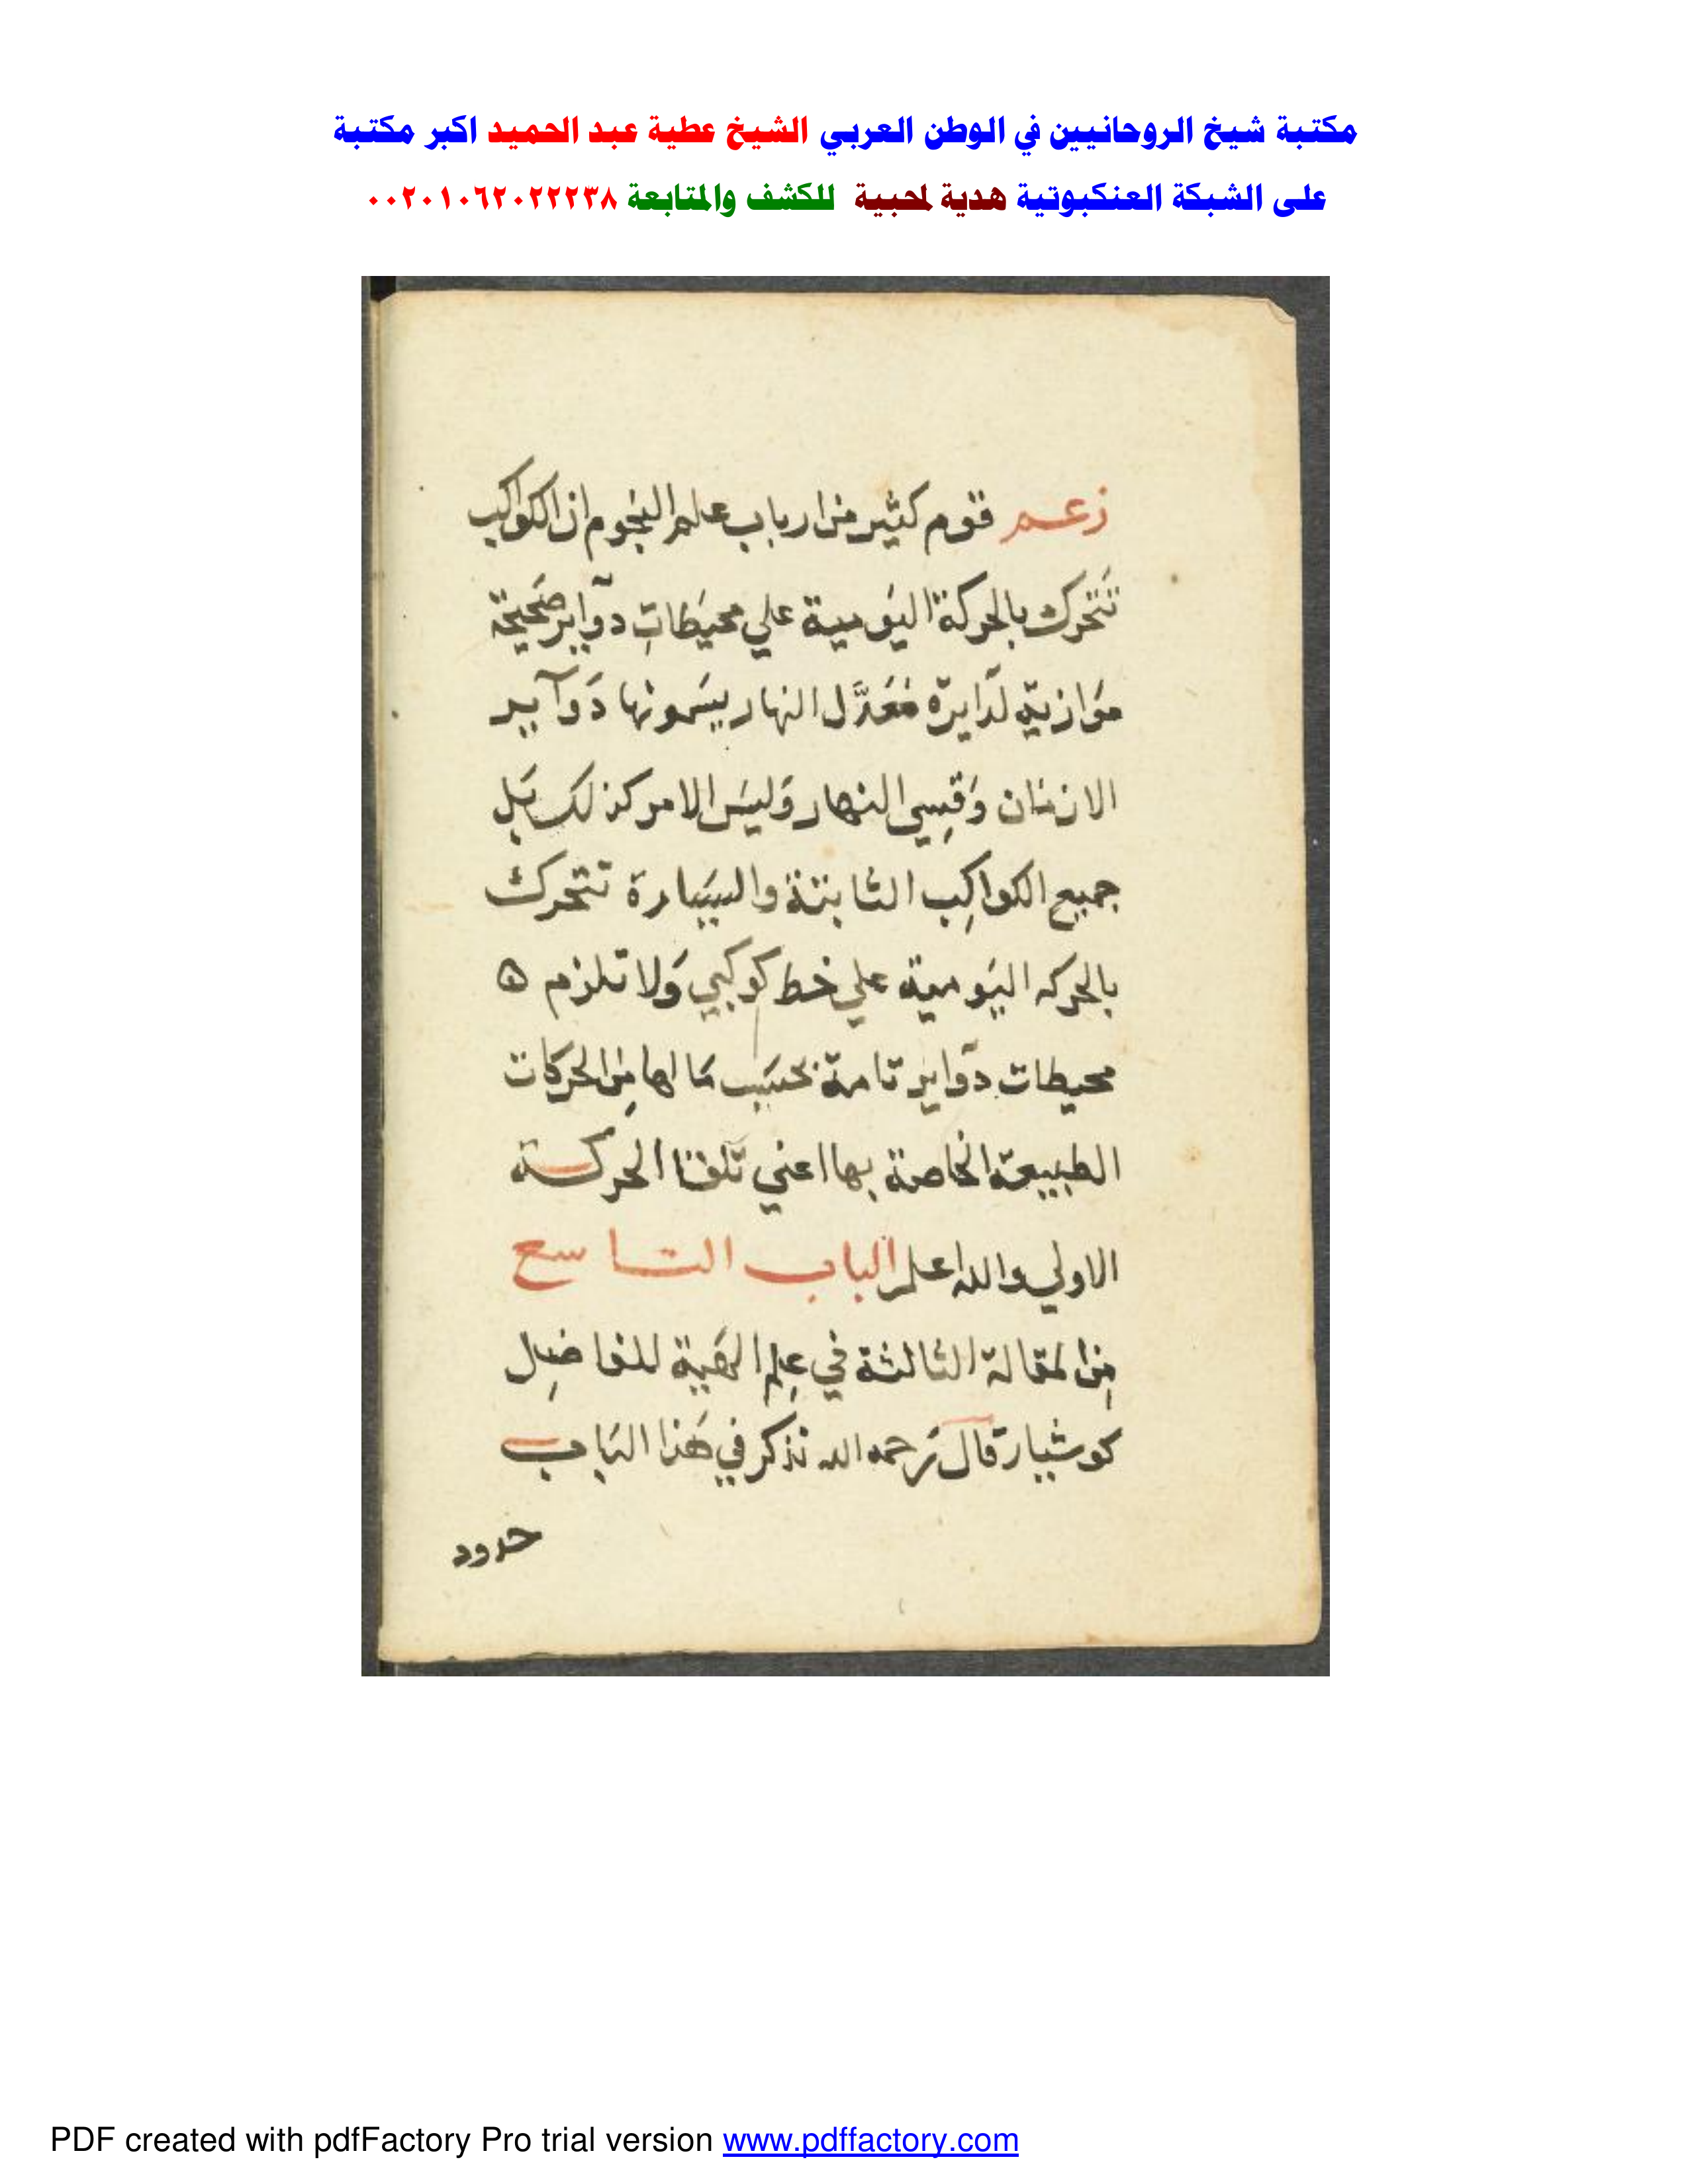 مكتبة شيخ الروحانيين في الوطن العربي الشيخ عطية عبد الحميد اكبر مكتبة
على الشبكة العنكبوتية هدية لمحبية للكشف والمتابعة ٠٠٢٠١٠٦٢٠٢٢٢٣٨
زعم قوم كثير من ارباب علم النجوم ان الكواكب
تَتحرك بالحركة اليَومية علي محيَطاتِ دوآير صَحيحة
مَوازية لدَايرة مُعَدَّل النهار يسَمونها دَوآير
الازمان وَقِسِي النهار وَليسَ الامر كذلك بَل
جميع الكواكِب الثابتة والسيَارة تتحرك
بالحركه اليَومية علي خط كوكبي وَلا تلزم ه
محيطات دوَاير تامة بحسَب مَا لها مِن الحركات
الطبيعة الخاصة بها اعني تلقا الحركة
الاولي والله اعلم الباب التاسع
مِن المقالة الثالثة في عِلم الهَية للفاضِل
كوشيار قال رَحمه الله نذكر في هَذا البَاب
حدود
PDF created with pdfFactory Pro trial version www.pdffactory.com